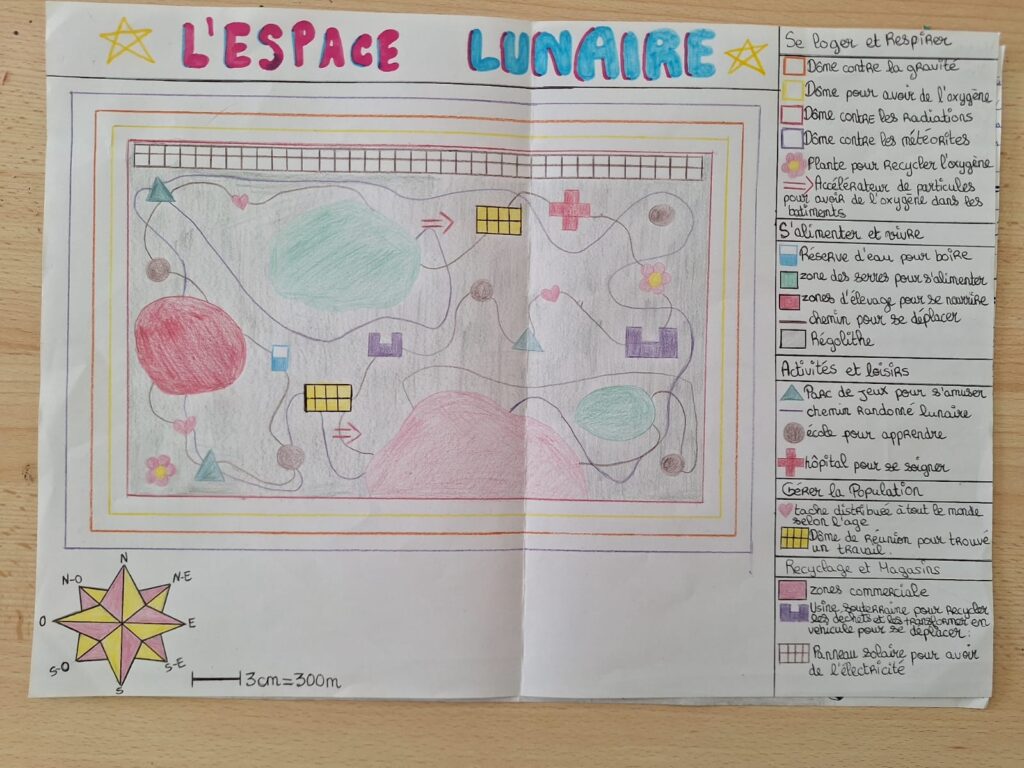 L'ESPACE LUNAIRE
Se loger et Respirer
Dôme contre la gravité
Dôme pour avoir de l'oxygène
Dôme contre les radiations
Dôme contre les météorites
Plante pour Recycler l'oxygène
Accélérateur de particules
pour avoir de l'oxygène dans les
bâtiments
S'alimenter et vivre
Réserve d'eau pour boire
zone des serres pour s'alimenter
zones d'élevage pour se nourrire
chemin pour se déplacer
Régolithe
Activités et loisirs
Parc de jeux pour s'amuser
chemin Randonné lunaire
école pour apprendre
hôpital pour se soigner
Gérer la Population
tache distribuée à tout le monde
selon l'age
Dôme de Réunion pour trouvé
un travail.
Recyclage et Magasins
zones commerciale
Usine souterraine pour recycler
les déchets et les transformer en
véhicule pour se déplacer.
Panneau solaire pour avoir
de l'électricité
N
N-O
N-E
O
E
S-O
S-E
S
3cm=300m